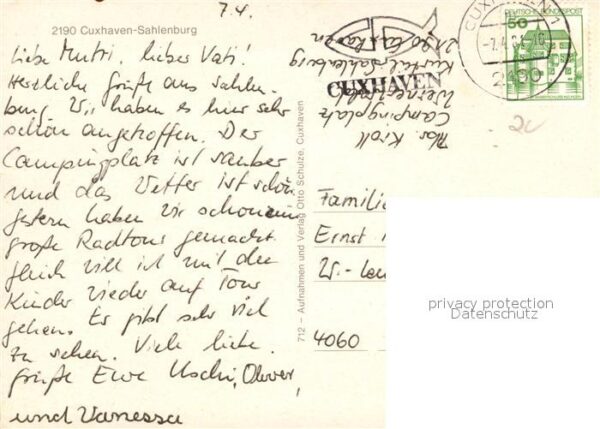 7.4.
2190 Cuxhaven-Sahlenburg
Liebe Mutti, lieber Vati!
Herzliche Grüße aus Sahlen-
burg. Wir haben es hier sehr
schön angetroffen. Der
Campingplatz ist sauber
und das Wetter ist schön
gestern haben wir schon eine
große Radtour gemacht.
gleich will ich mit den
Kinder wieder auf Tour
gehen. Es gibt sehr viel
zu sehen. Viele liebe
Grüße Eure Uschi, Oliver,
und Vanessa
712 – Aufnahmen und Verlag Otto Schulze, Cuxhaven
CUXHAVEN
CUXHAVEN 1
2190
DEUTSCHE BUNDESPOST
50
Abs. Kroll
Campingplatz
Kurteil Sahlenburg
2190 Cuxhaven
Familie
Ernst
W.-
4060
privacy protection
Datenschutz